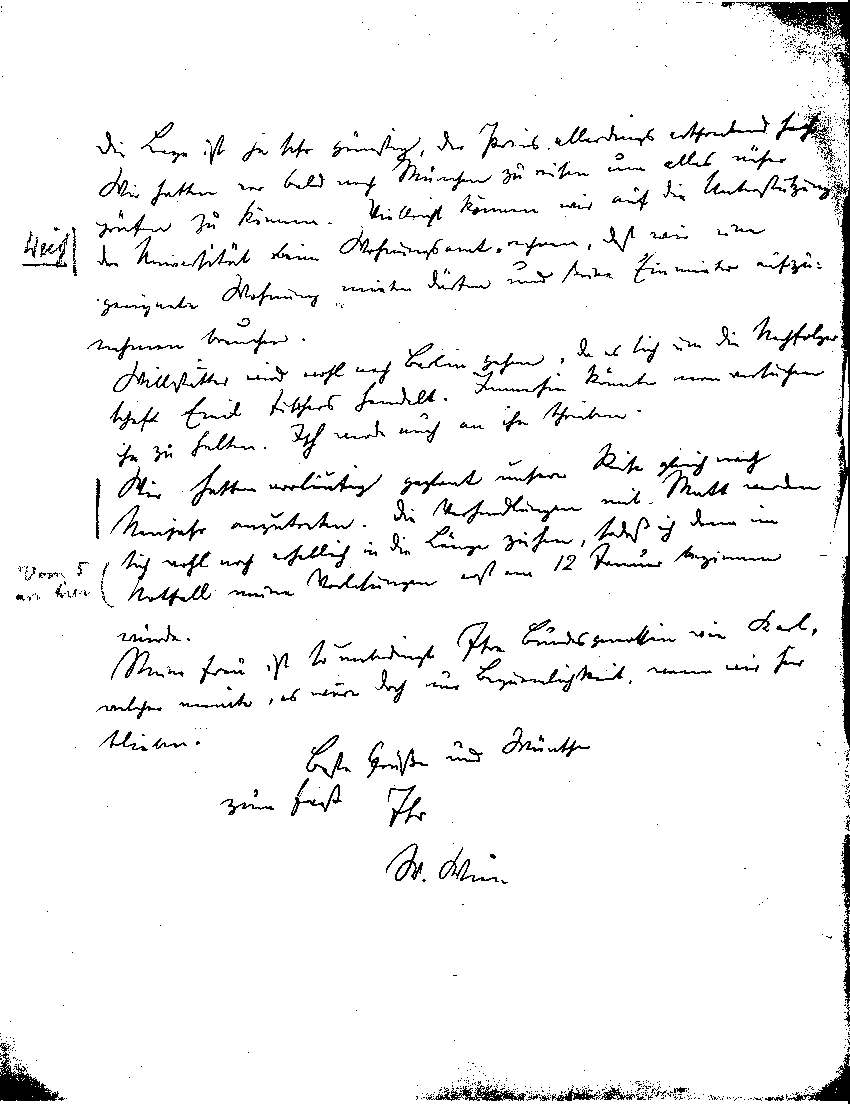 die Lage ist ja sehr günstig, der Preis allerdings entsprechend hoch
Wir hatten vor bald nach München zu reisen um alles näher
prüfen zu können. Vielleicht können wir auf die Unterstützung
der Universität beim Wohnungsamt rechnen, daß wir eine
geeignete Wohnung mieten dürfen und keine Einmieter aufzu-
nehmen brauchen.
Willstätter wird wohl nach Berlin gehen, da es sich um die Nachfolger-
schaft Emil Fischers handelt. Immerhin könnte man versuchen
ihn zu halten. Ich werde auch an ihn schreiben.
Wir hatten vorläufig geplant unsere Reise gleich nach
Neujahr anzutreten. Die Verhandlungen mit Matt werden
sich wohl noch erheblich in die Länge ziehen, sodaß ich dann im
Notfall meine Vorlesungen erst am 12 Januar beginnen
würde.
Vom 5
an hier
Meine Frau ist so unbedingt Ihre Bundesgenossin wie Karl,
welcher meinte, es wäre doch nur Bequemlichkeit, wenn wir hier
blieben.
Beste Grüße und Wünsche
zum Fest Ihr
W. Wien